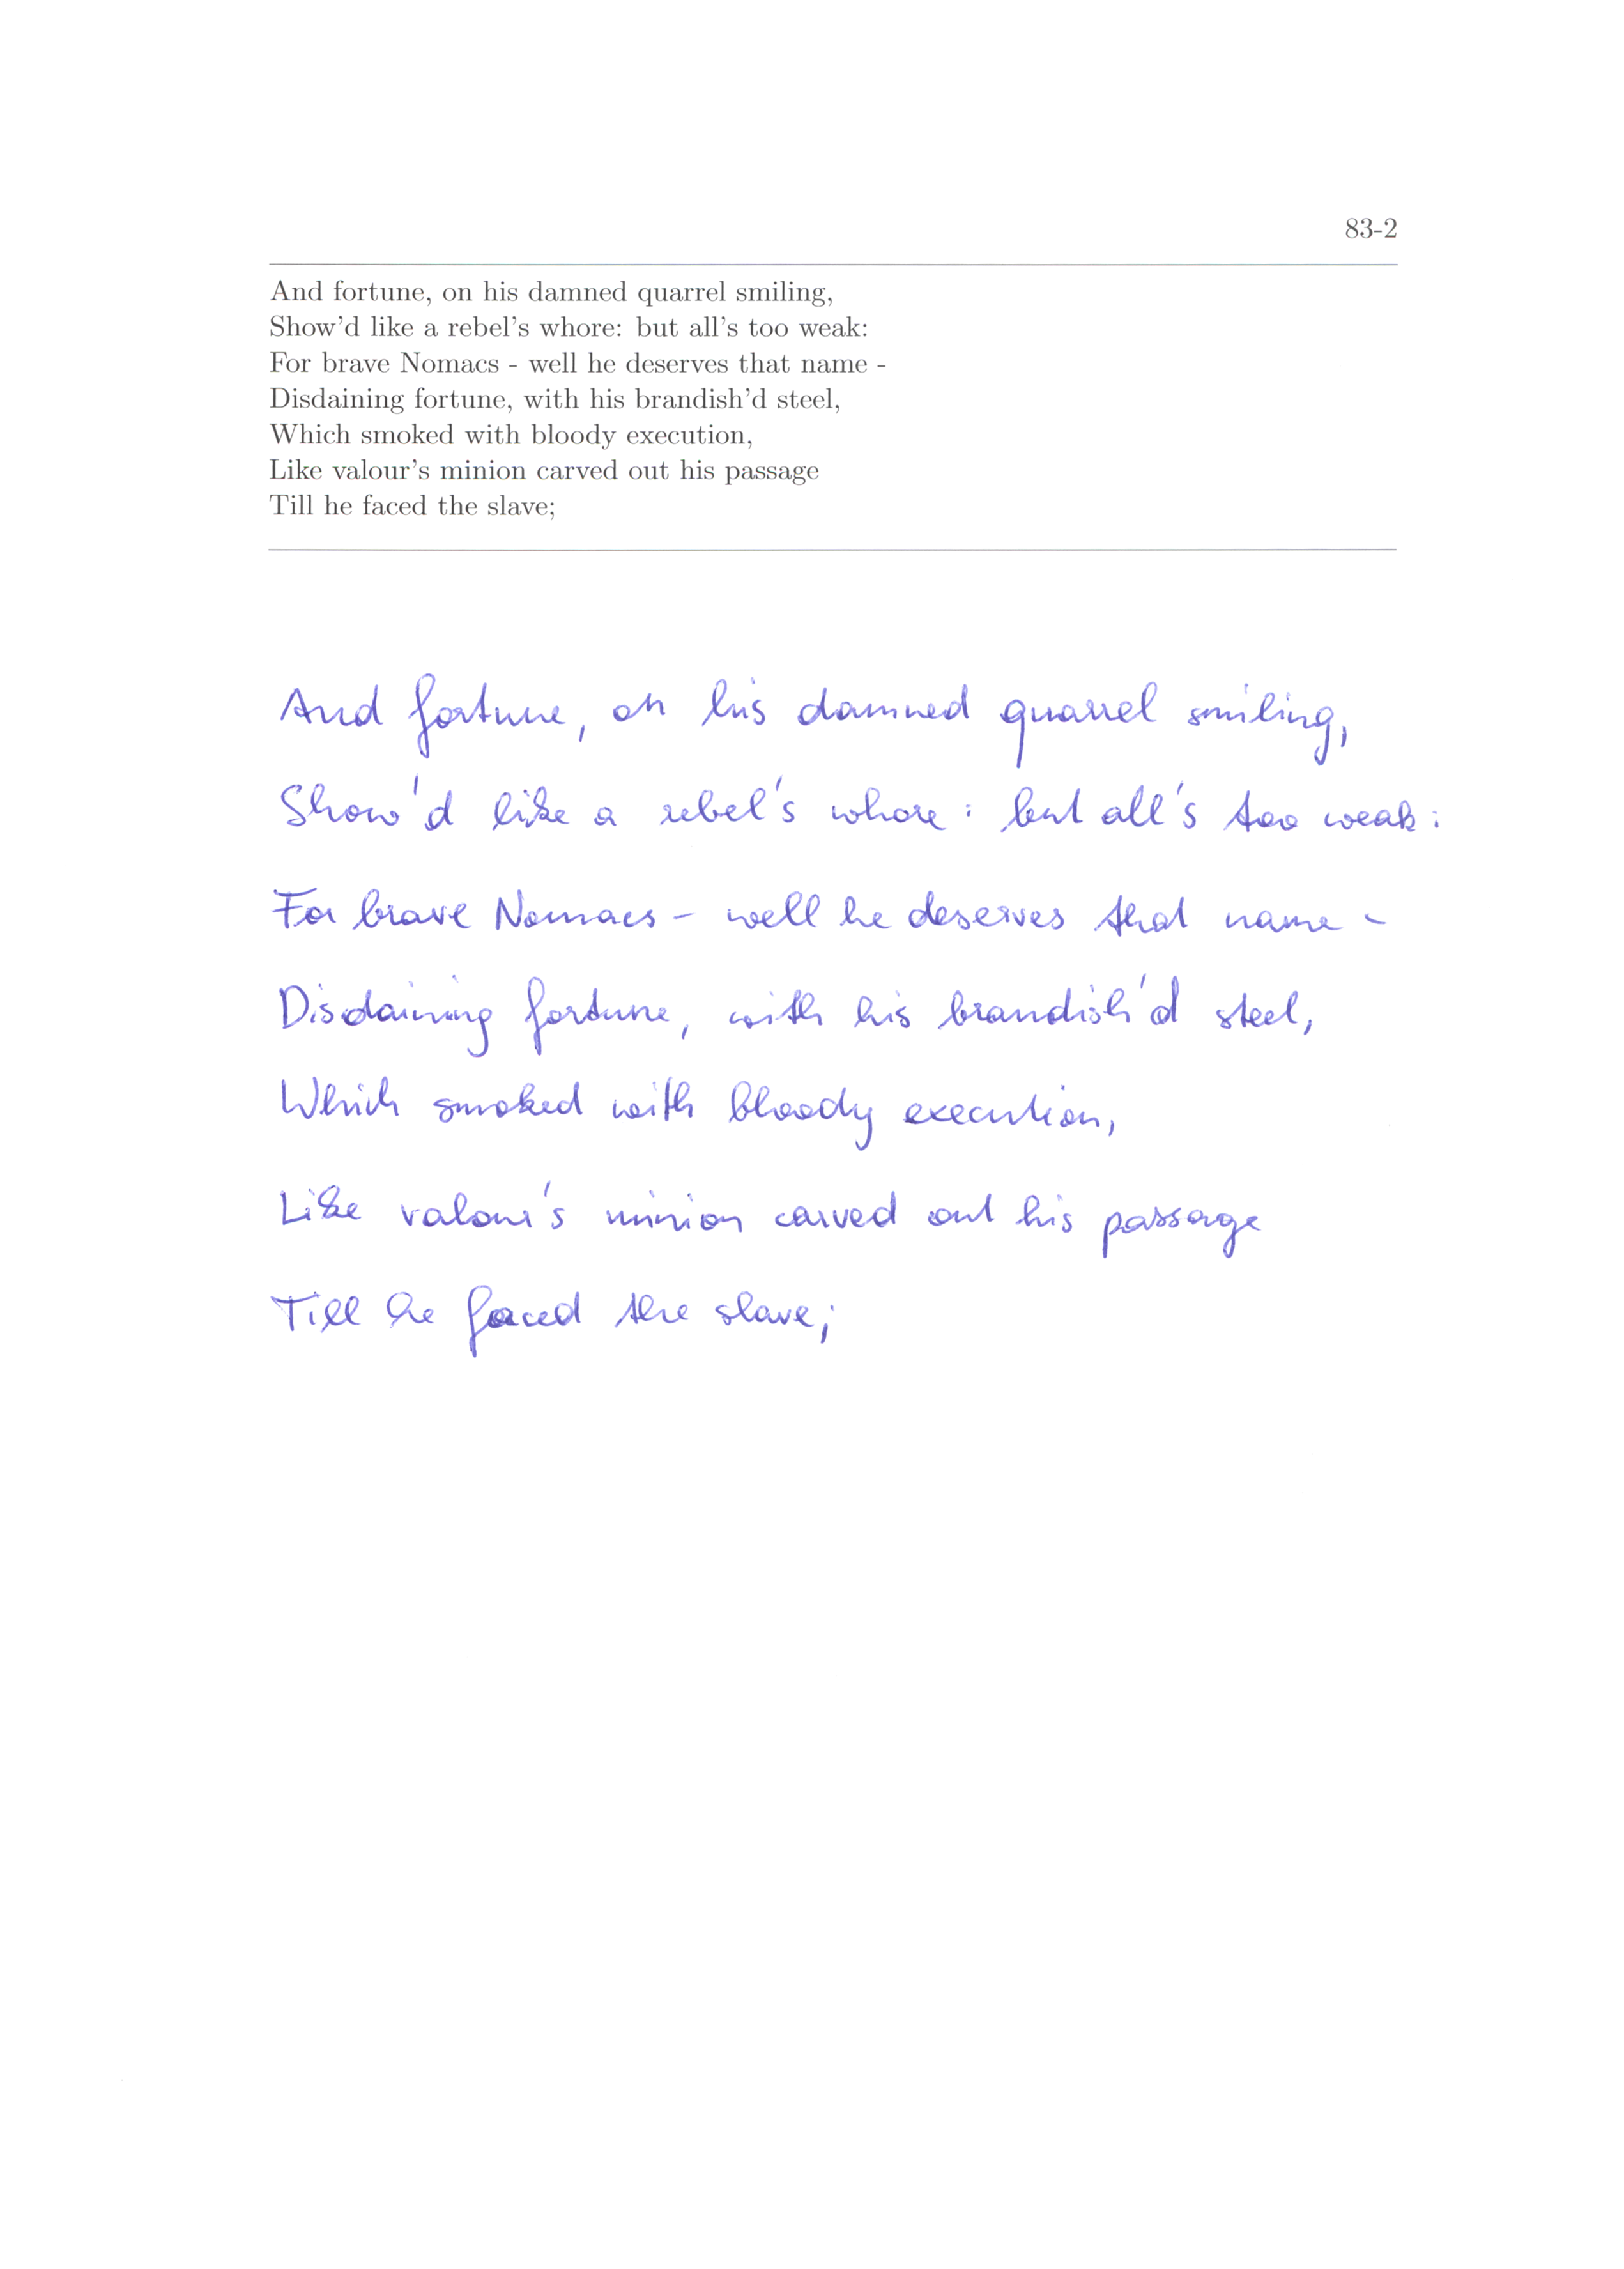 83-2
And fortune, on his damned quarrel smiling,
Show'd like a rebel's whore: but all's too weak:
For brave Nomacs - well he deserves that name -
Disdaining fortune, with his brandish'd steel,
Which smoked with bloody execution,
Like valour's minion carved out his passage
Till he faced the slave;
And fortune, on his damned quarrel smiling,
Show'd like a rebel's whore: but all's too weak:
For brave Nomacs - well he deserves that name -
Disdaining fortune, with his brandish'd steel,
Which smoked with bloody execution,
Like valour's minion carved out his passage
Till he faced the slave;